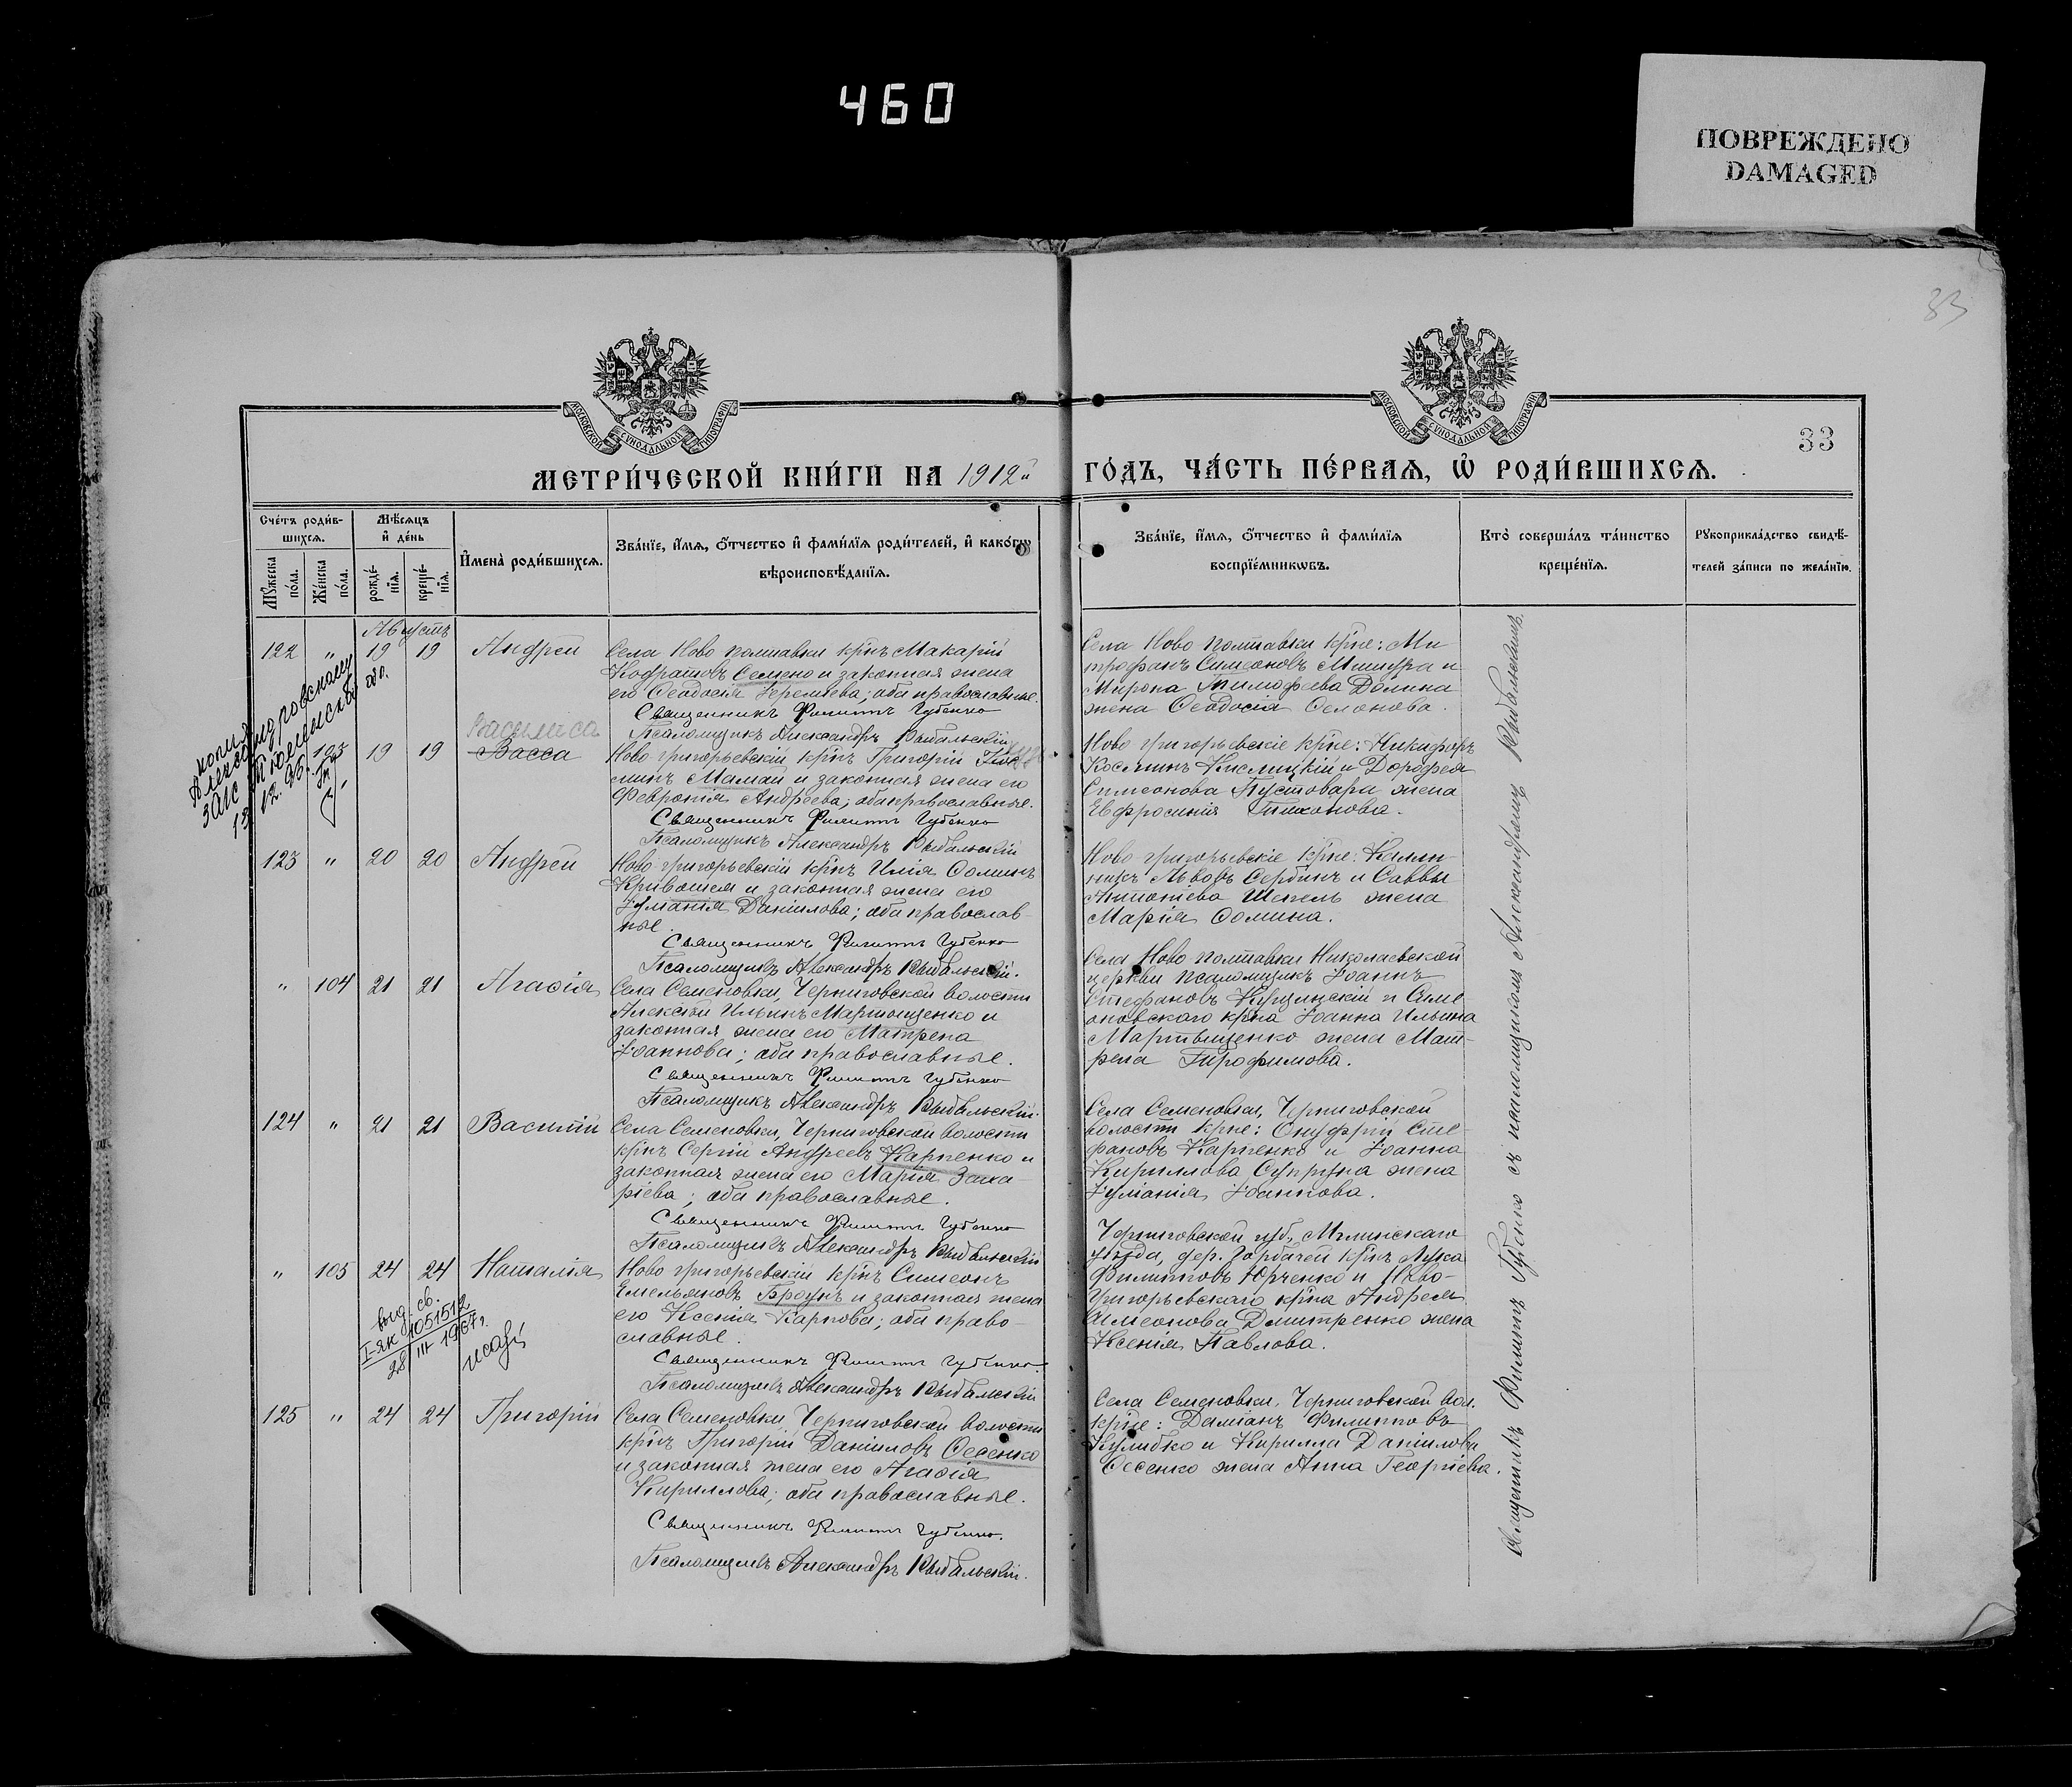 460
ПОВРЕЖДЕНО
DAMAGED
83
МОСКОВСКОЙ СѴНОДАЛЬНОЙ ТИПОГРАФІИ
МОСКОВСКОЙ СѴНОДАЛЬНОЙ ТИПОГРАФІИ
33
МЕТРИ́ЧЕСКОЙ КНИ́ГИ НА 1912й ГО́ДЪ, ЧА́СТЬ ПЕ́РВАѦ, Ѽ РОДИ́ВШИХСѦ.
Сче́тъ роди́в-
шихсѧ.
Мꙋ́жеска по́ла.
Же́нска по́ла.
Мѣ́сѧцъ
и҆ де́нь
рожде́-
нїѧ.
креще́-
нїѧ.
И҆мена̀ роди́вшихсѧ.
Зва́нїе, и҆́мѧ, ѻ҆́тчество и҆ фами́лїѧ роди́телей, и҆ како́гѡ
вѣроисповѣ́данїѧ.
Зва́нїе, и҆́мѧ, ѻ҆́тчество и҆ фами́лїѧ
воспрїе́мникѡвъ.
Кто̀ соверша́лъ та́инство
креще́нїѧ.
Рꙋкоприкла́дство свидѣ́-
телей за́писи по жела́нїю.
Августъ
122 " 19 19 Андрей
Села Ново полтавки крнъ Макарій
Кодратовъ Семено и законная жена
его Ѳеодосія Іереміева; оба православные.
Священникъ Филиппъ Губенко
Псаломщикъ Александръ Рыбальскій
Села Ново полтавки крне: Ми
трофанъ Симеоновъ Мишура и
Мирона Тимофеева Долина
жена Ѳеодосія
копия
12.95.
103 19 19 Васса
Василиса
Ново григорьевскій крнъ Григорій
минъ Мамай и законная жена его
Февронія Андреева; оба православные.
Священникъ Филиппъ Губенко
Псаломщикъ Александръ Рыбальскій
Ново григорьевскіе крне: Никифоръ
Косминъ Кислицкій и Дорофея
Симеонова Пустовара жена
Евфросинія Тихонова.
123 " 20 20 Андрей
Ново григорьевскій крнъ Илія Ѳоминъ
Кривошея и законная жена его
Іуліанія Даніилова; оба православ-
ные.
Священникъ Филиппъ Губенко
Псаломщикъ Александръ Рыбальскій.
Ново григорьевскіе крне: Калин-
никъ Львовъ Сербинъ и Саввы
Антоніева Шепель жена
Марія Ѳомина.
" 104 21 21 Агафія
Села Семеновки, Черниговской волости
Алексѣй Ильинъ Мартыщенко и
законная жена его Матрена
Іоаннова; оба православные.
Священникъ Филиппъ Губенко
Псаломщикъ Александръ Рыбальскій.
Села Ново полтавки Николаевской
церкви псаломщикъ Іоаннъ
Стефановъ и Семе-
оновскаго крна Іоанна Ильина
Мартыщенко жена Мат-
рена Трофимова.
124 " 21 21 Василій
Села Семеновки, Черниговской волости
крнъ Сергій Андреевъ Карпенко и
законная жена его Марія Заха-
ріева; оба православные.
Священникъ Филиппъ Губенко
Псаломщикъ Александръ Рыбальскій
Села Семеновки, Черниговской
волости крне: Онуфрій Сте-
фановъ Карпенко и Іоанна
Кириллова Супруна жена
Іуліанія Іоаннова.
" 105 24 24 Наталія
выд. св.
I-ЯК 1051512
28 III 1967г.
Ново григорьевскій крнъ Симеонъ
Емельяновъ Браунъ и законная жена
его Ксенія Карпова; оба право-
славные.
Священникъ Филиппъ Губенко.
Псаломщикъ Александръ Рыбальскій
Черниговской губ., Мглинскаго
уѣзда, дер. Горбачей крнъ Лука
Филипповъ Юрченко и Ново-
Григорьевскаго крна Андрея
Симеонова Дмитренко жена
Ксенія Павлова.
125 " 24 24 Григорій
Села Семеновки, Черниговской волости
крнъ Григорій Даніиловъ Ѳесенко
и законная жена его Агафія
Кириллова; оба православные.
Священникъ Филиппъ Губенко.
Псаломщикъ Александръ Рыбальскій.
Села Семеновки, Черниговской вол.
крне: Даміанъ Филипповъ
Кулибко и Кирилла Даніилова
Ѳесенко жена Анна Георгіева.
Священникъ Филиппъ Губенко съ псаломщикомъ Александромъ Рыбальскимъ.